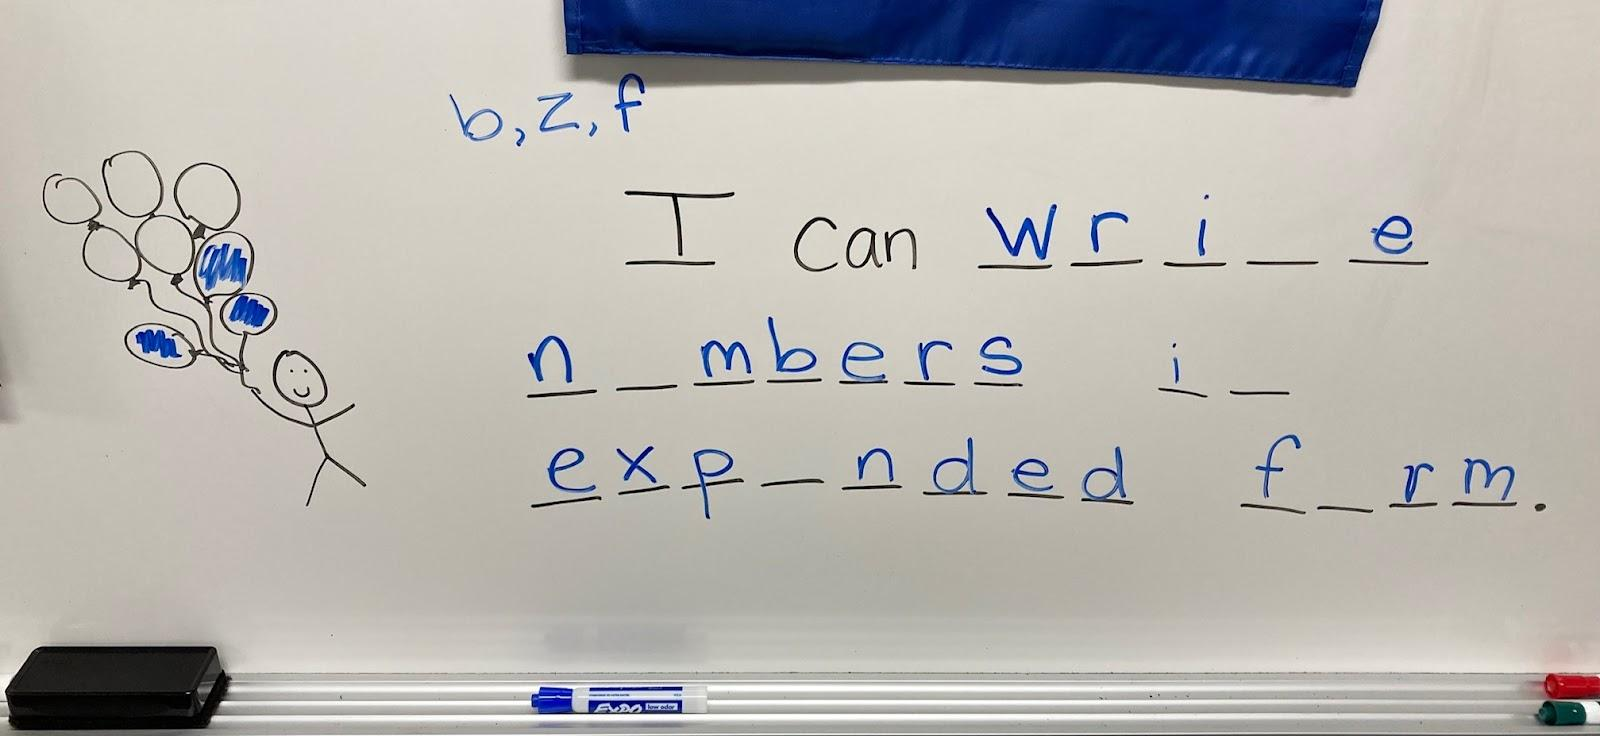 b, z, f
I can wri_e
n_mbers i_
exp_nded f_rm.
EXPO low odor